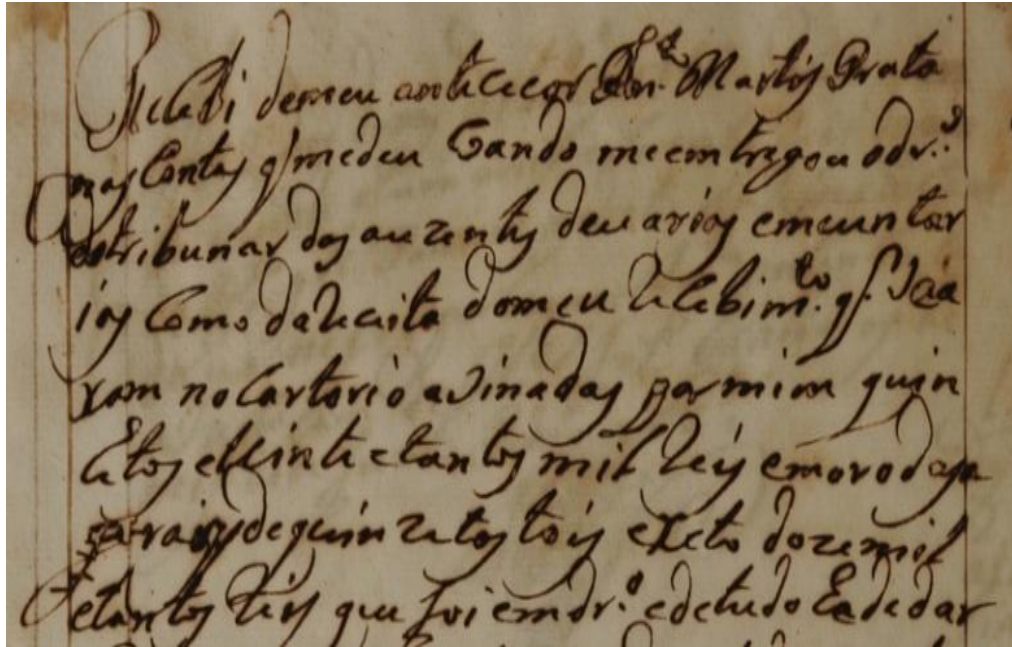 Recebi demeu antececor An.to Martiz Prata
nas Contas q̃ medeu Cando meentregou odr.o
dotribunar dos auzentes deuarios emeuntar
ios Como dareceita domeu recebim.to q̃ ficá
ram noCartorio asinadas por mim quin
hetos eVinte etantos mil Reis emoro daza
de quinzetos tois exeto dozemil
etantos Reis que foi emdr.o edetudo Eadedar